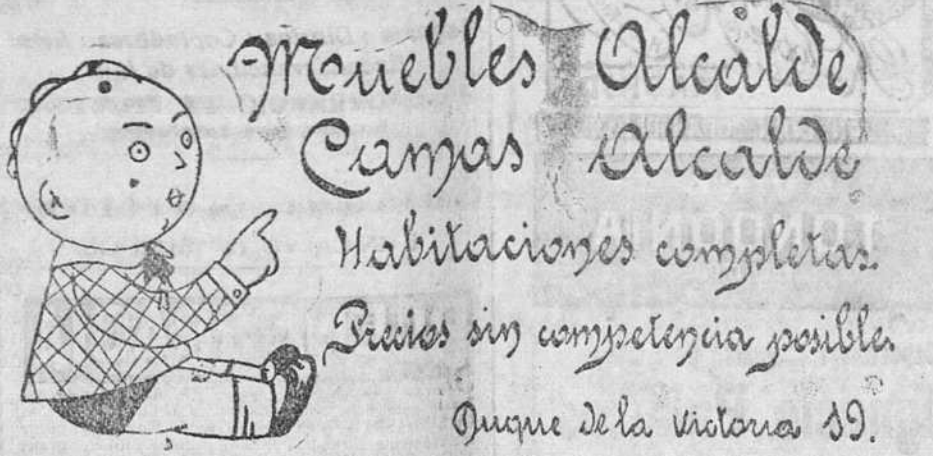 Muebles Alcalde
Camas Alcalde
Habitaciones completas.
Precios sin competencia posible.
Duque de la Victoria 19.